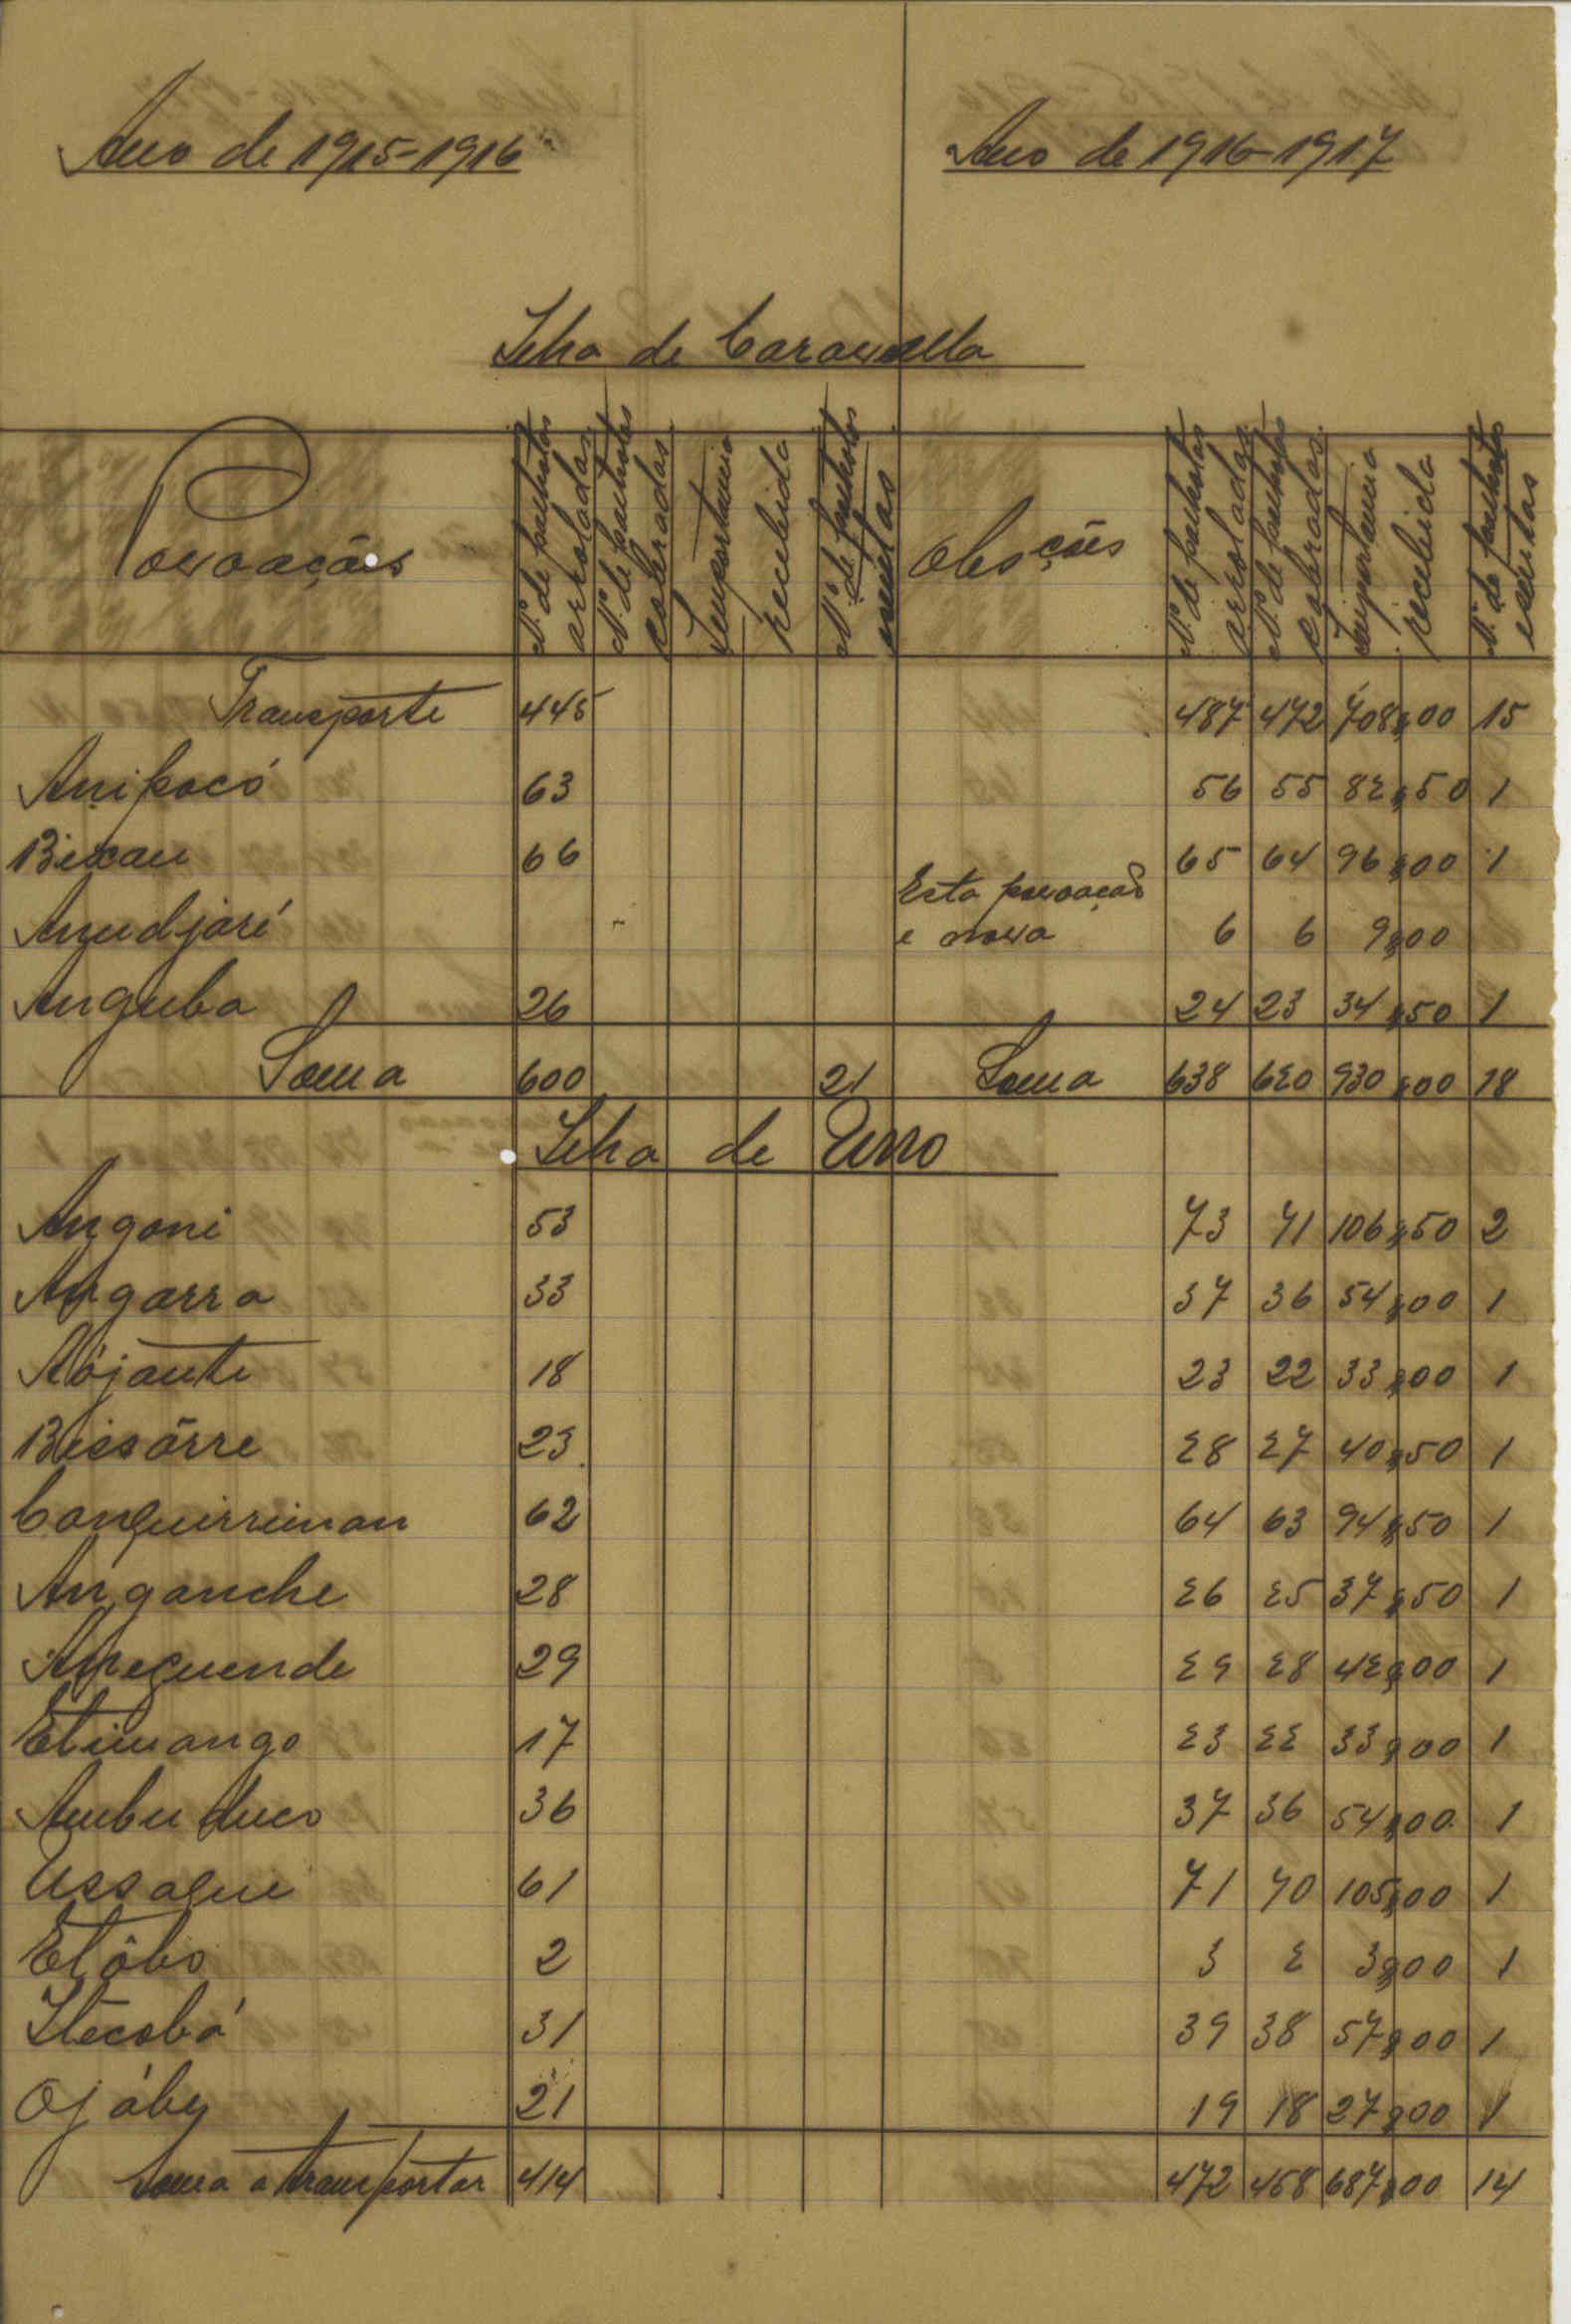 Ano de 1915-1916 Ano de 1916-1917
Ilha de Caravella
Povoações Nº. de palhotas arroladas. Nº. de palhotas cobradas. Importancia recebida Nº. de palhotas exemptas Obsções Nº. de palhotas arroladas. Nº. de palhotas cobradas. Importancia recebida Nº. de palhotas exemptas
Transporte 445 487 472 708$00 15
Anipocó 63 56 55 82$50 1
Bixau 66 65 64 96$00 1
Esta povoação
Anudjaré 6 6 9$00
e nova
Anguba 26 24 23 34$50 1
Soma 600 21 Soma 638 620 930$00 18
Ilha de Uno
Angoni 53 73 71 106$50 2
Angarra 33 37 36 54$00 1
Aójante 18 23 22 33$00 1
Bissôrre 23 28 27 40$50 1
Canquirriman 62 64 63 94$50 1
Anganche 28 26 25 37$50 1
Aneguende 29 29 28 42$00 1
Etimango 17 23 22 33$00 1
Ambuduco 36 37 36 54$00 1
Ussaque 61 71 70 105$00 1
Etôbo 2 3 2 3$00 1
Itecobá 31 39 38 57$00 1
Ojáby 21 19 18 27$00 1
Soma a transportar 414 472 458 687$00 14